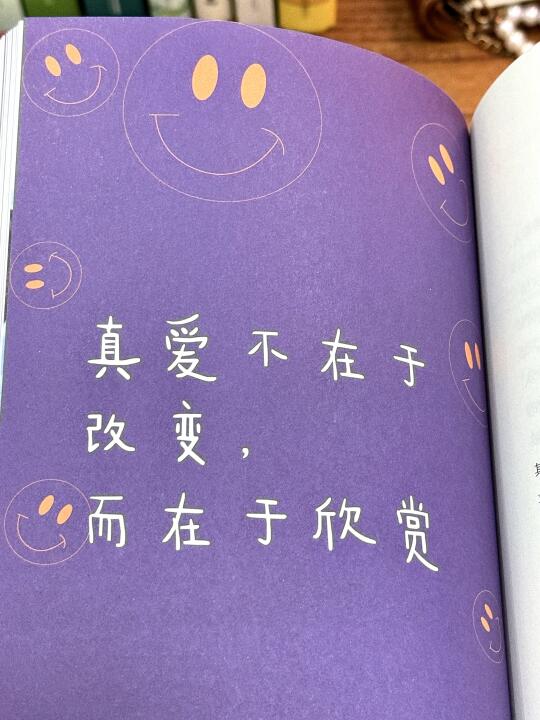 真爱不在于
改变，
而在于欣赏